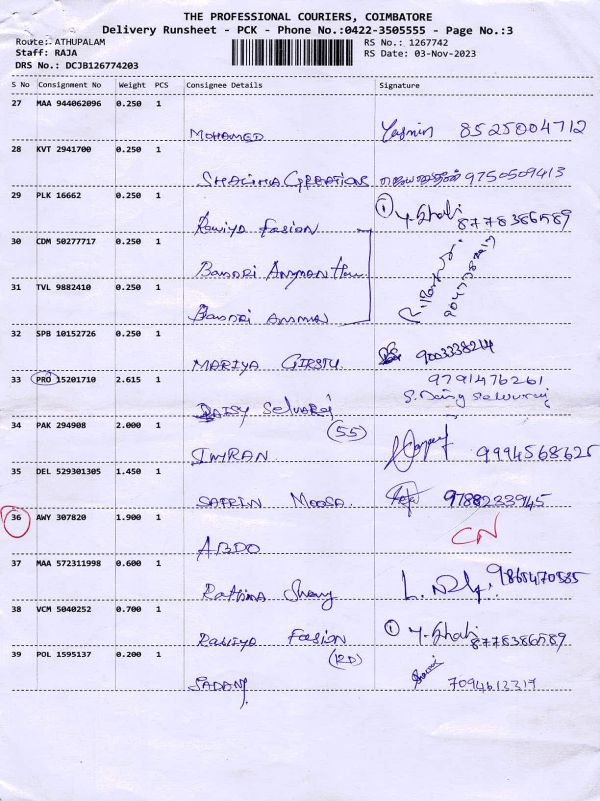 THE PROFESSIONAL COURIERS, COIMBATORE
Delivery Runsheet - PCK - Phone No.:0422-3505555 - Page No.:3
Route: ATHUPALAM RS No.: 1267742
Staff: RAJA RS Date: 03-Nov-2023
DRS No.: DCJB126774203
S No Consignment No Weight PCS Consignee Details Signature
27 MAA 944062096 0.250 1
MOHAMED Yasmin 8525004712
28 KVT 2941700 0.250 1
SHALIHA CREATIONS 9750509413
29 PLK 16662 0.250 1
Rawiya Fasion ① Y. Shabi 8778386589
30 CDM 50277717 0.250 1
Bannari Amman
31 TVL 9882410 0.250 1
Bannari Amman
32 SPB 10152726 0.250 1
MARIYA 9003338214
33 PRO 15201710 2.615 1
DAISY Selvaraj 9791476261
S. Daisy Selvaraj
34 PAK 294908 2.000 1
(55)
IMRAN 9994568625
35 DEL 529301305 1.450 1
SAFRIN MOOSA 9788233945
36 AWY 307820 1.900 1
ABDO CN
37 MAA 572311998 0.600 1
Rathina 9865470585
38 VCM 5040252 0.700 1
Rawiya Fasion ① Y. Shabi 8778386589
39 POL 1595137 0.200 1
(RD)
7094613319